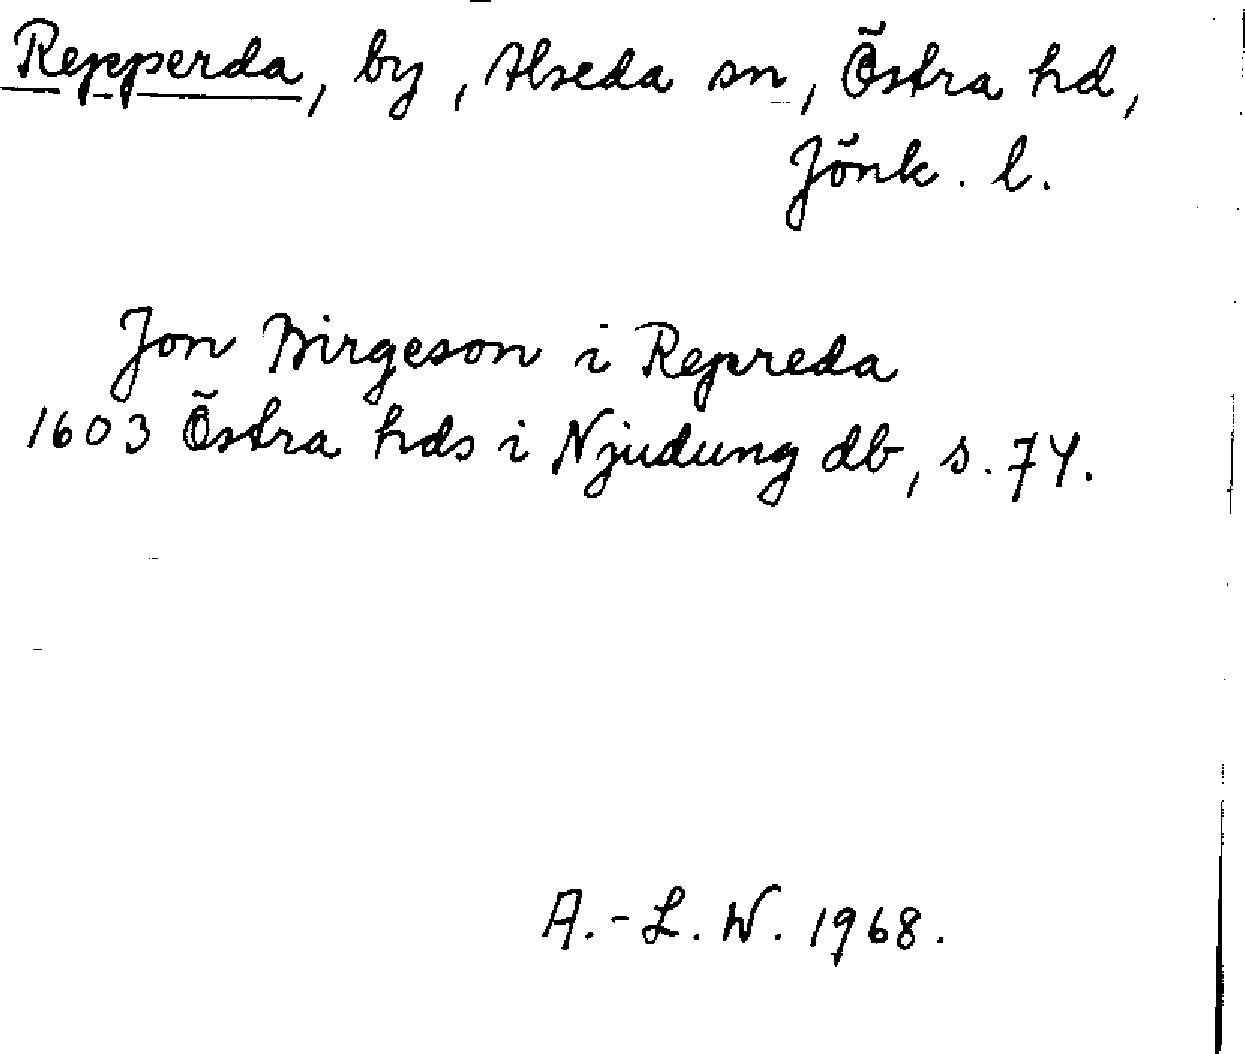 Repperda, by, Alseda sn, Östra hd,
Jönk. l.
Jon Birgeson i Repreda
1603 Östra hds i Njudung db, s. 74.
A.-L. W. 1968.